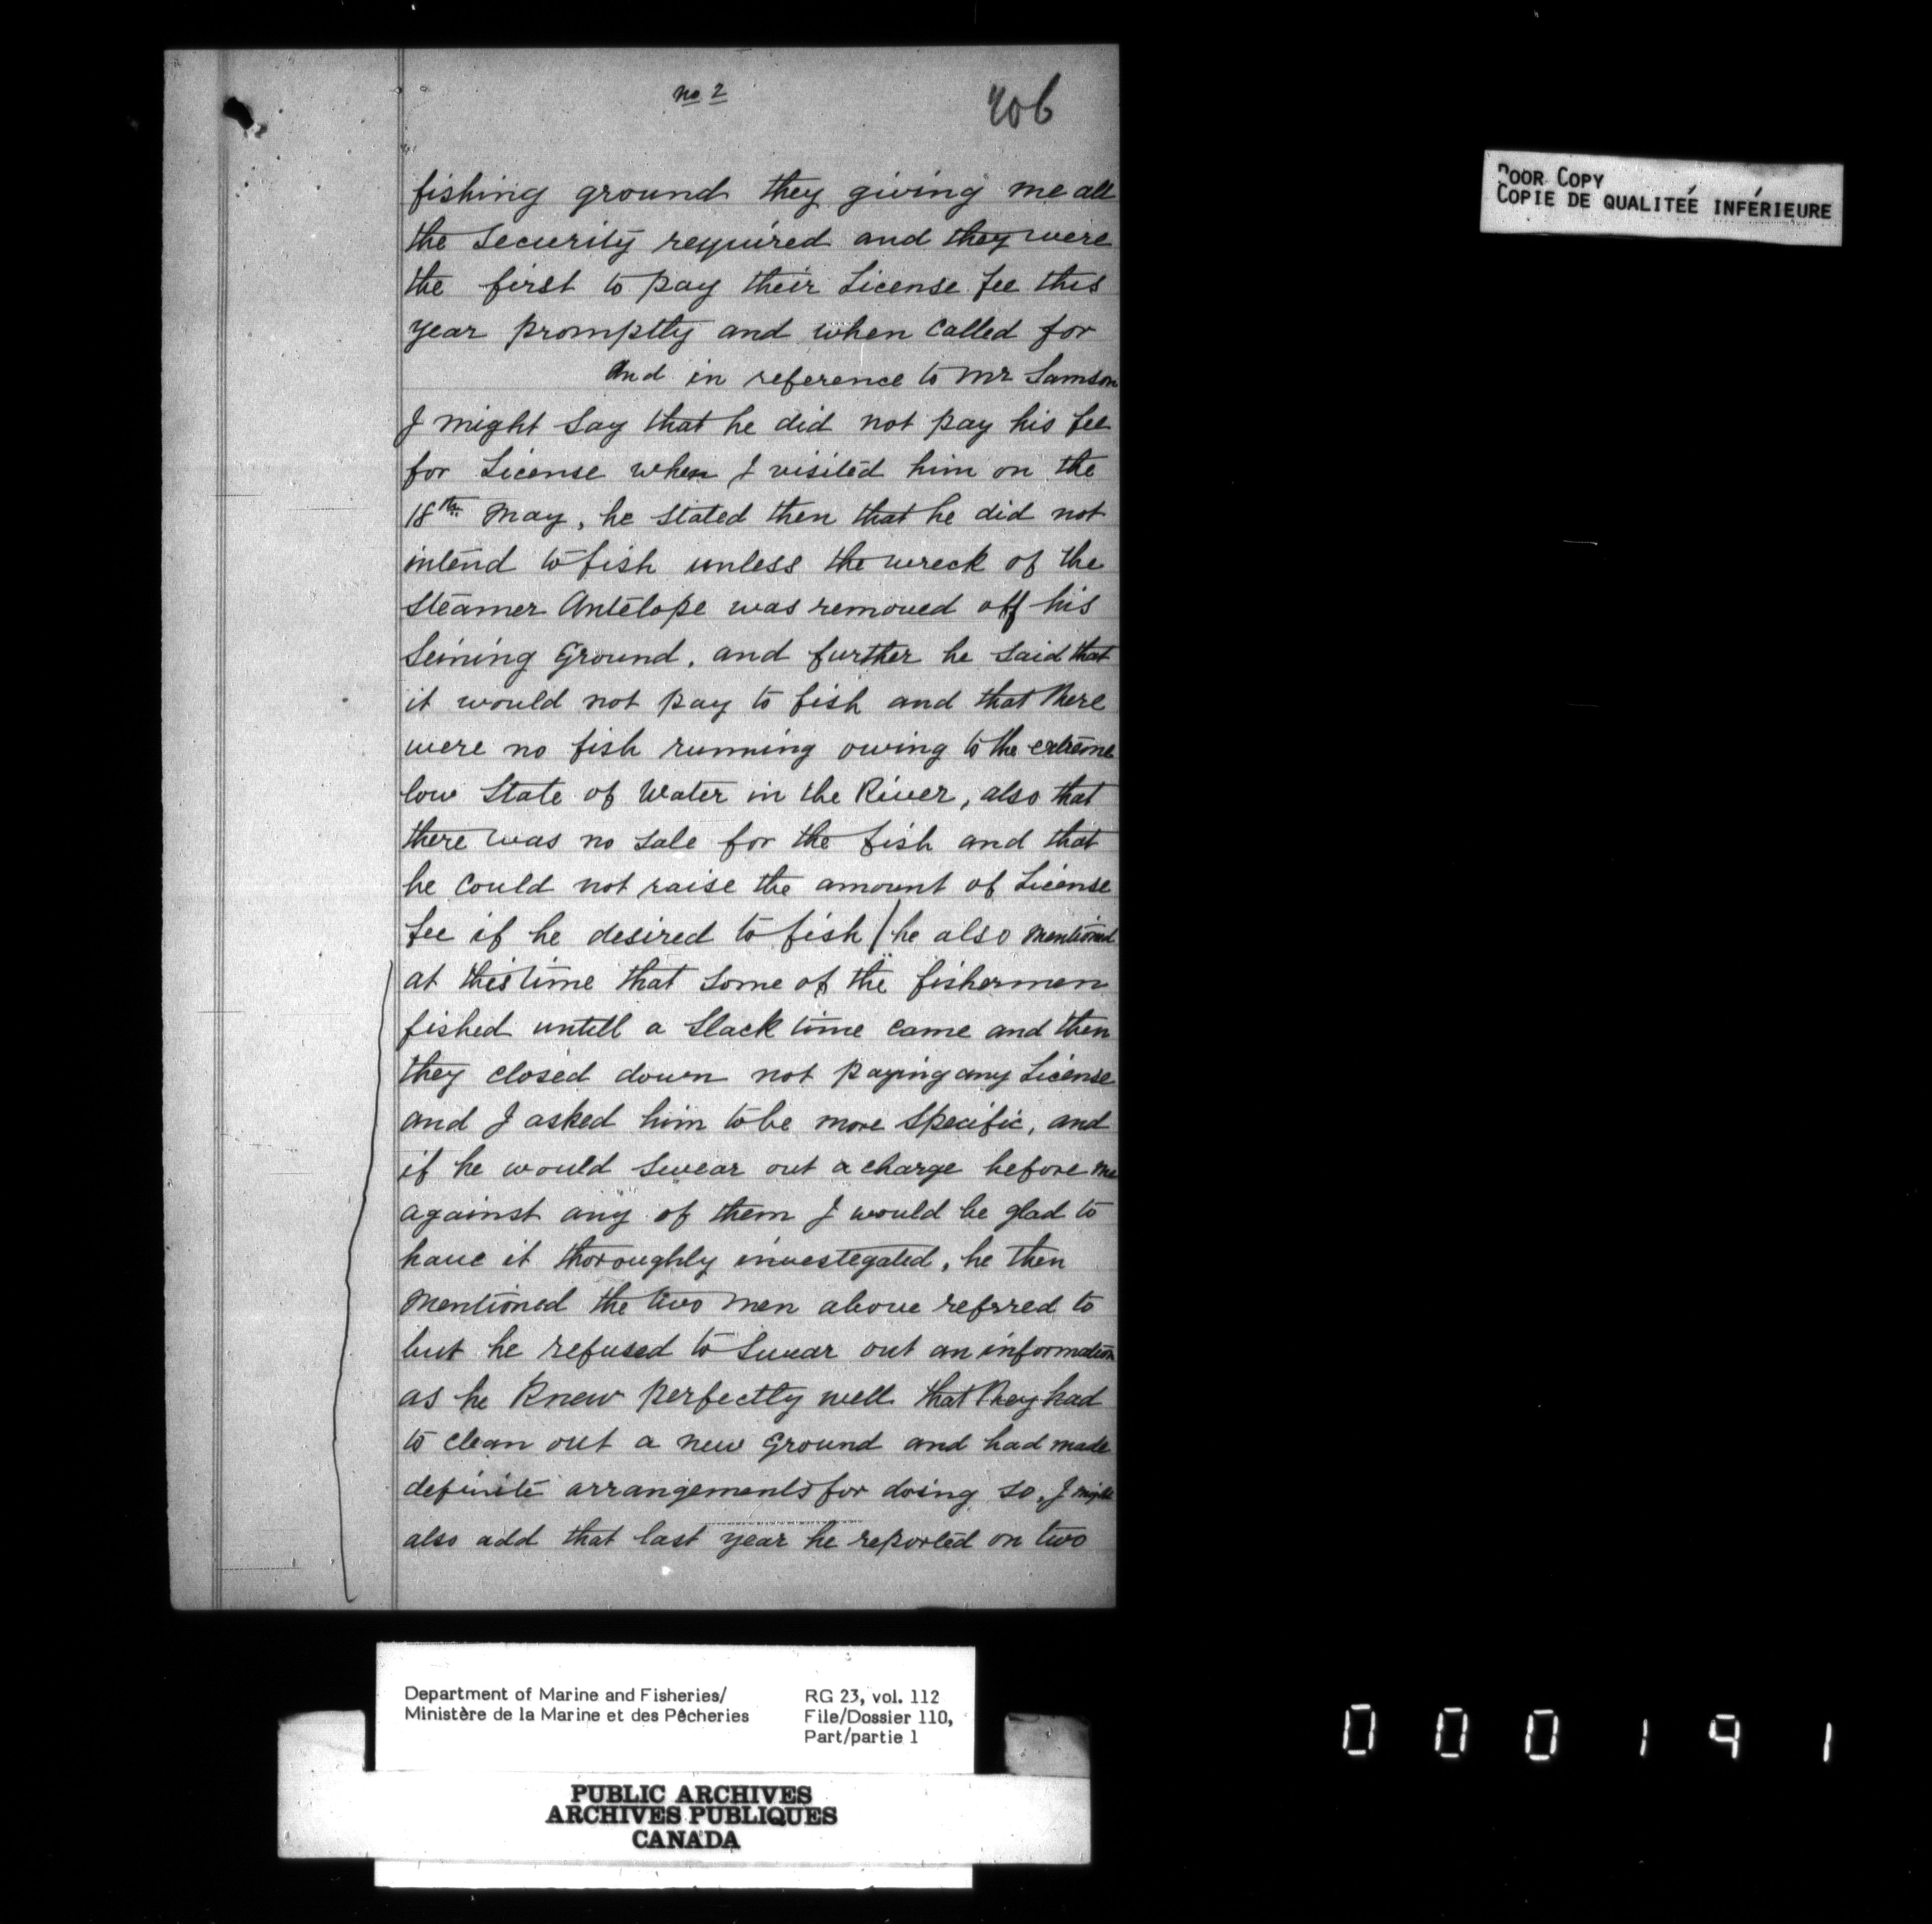 no 2
206
fishing ground they giving me all
the Security required and they were
the first to pay their License fee this
year promptly and when Called for
And in reference to Mr Samson
I might Say that he did not pay his fee
for License when I visited him on the
18th May, he stated then that he did not
intend to fish unless the wreck of the
Steamer Antelope was removed off his
Seining Ground, and further he Said that
it would not pay to fish and that there
were no fish running owing to the extreme
low State of Water in the River, also that
there was no sale for the fish and that
he Could not raise the amount of License
fee if he desired to fish / he also mentioned
at this time that Some of the fishermen
fished untill a Slack time Came and then
they closed down not paying any License
and I asked him to be more Specific, and
if he would Swear out a charge before me
against any of them I would be glad to
have it thoroughly investegated, he then
mentioned the two men above referred to
but he refused to Swear out an information
as he Knew perfectly well that they had
to clean out a new Ground and had made
definite arrangements for doing so, I might
also add that last year he reported on two
POOR COPY
COPIE DE QUALITEÉ INFÉRIEURE
Department of Marine and Fisheries/
Ministère de la Marine et des Pêcheries
RG 23, vol. 112
File/Dossier 110,
Part/partie 1
PUBLIC ARCHIVES
ARCHIVES PUBLIQUES
CANADA
000191